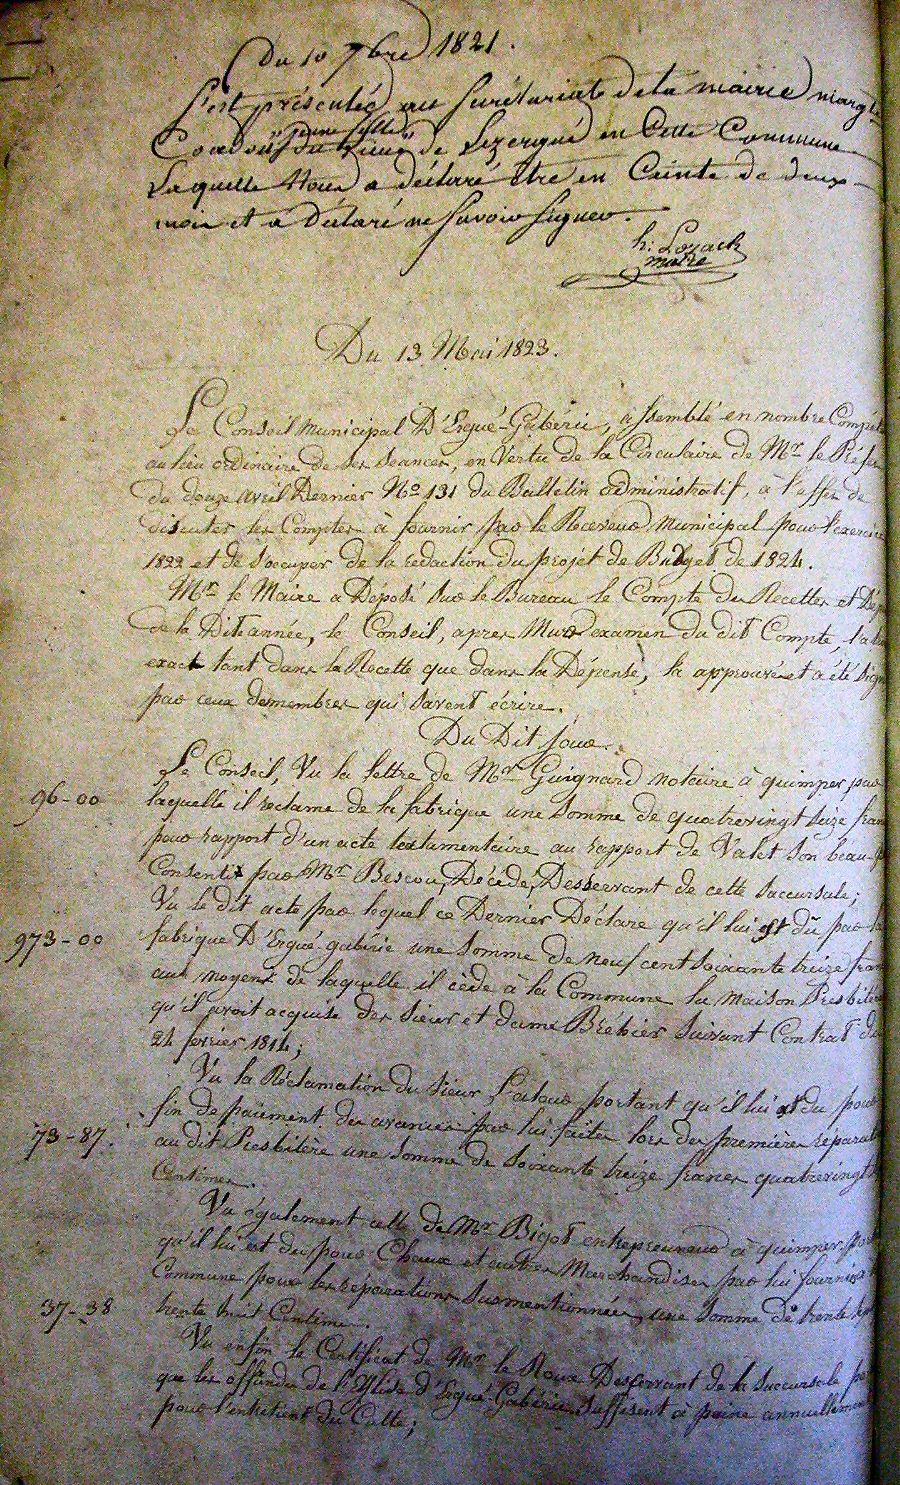 Du 10 7bre 1821.
S'est présentée au Surétariat de la mairie marg
"jeune fille"
de Lezergué en Cette Commune
Laquelle Nous a déclaré être en Ceinte de deux
mois et a Déclaré ne Savoir Signer.
h: Lozach
maire
Du 13 Mai 1823.
Le Conseil Municipal D'Ergué-Gabéric, assemblé en nombre Compét
au lieu ordinaire de ses seances, en Vertu de la Circulaire de Mr le Préfet
du douze avril Dernier No 131 du Bulletin administratif, à l'effet de
discuter les Comptes à fournir par le Receveur Municipal pour l'exercice
1822 et de s'occuper de la rédaction du projet de Budget de 1824.
Mr le Maire a Déposé sur le Bureau le Compte des Recettes et Dép
de la Dit année, le Conseil, apres Mur examen du dit Compte, l'a
exact tant dans la Recette que dans la Dépense, l'a approuvé et a été sign
par ceux des membres qui savent écrire.
Du Dit jour.
Le Conseil, Vu la lettre de Mr Guignard notaire à quimper par
96-00
laquelle il reclame de la fabrique une somme de quatrevingt seize fran
pour rapport d'un acte testamentaire au rapport de Valet son beau-p
Consentit par Mr Bescou, Décédé, Desservant de cette succursale;
Vu le dit acte par lequel ce Dernier Déclare qu'il lui est dû par la
973-00
fabrique D'Ergué-gabéric une somme de neuf cent soixante treize fran
aux moyens de laquelle il cède à la Commune la maison Presbitér
qu'il avoit acquise des sieur et dame Bréhier suivant Contrat du
24 février 1814;
Vu la Réclamation du sieur portant qu'il lui est du pour
fin de paiement des avances par lui faites lors des premières réparat
73-87.
au dit Presbitère une somme de soixante treize francs quatrevingt
Centimes.
Vu également celle de Mr Bigot entrepreneur à quimper
qu'il lui est du pour Chaux et autres Marchandises par lui fournies
Commune pour les réparations susmentionnées, une somme de trente
37-38
trente huit Centimes.
Vu enfin le Certificat de Mr le Roux Desservant de la succursale
que les offrandes de l'Eglise d'Ergué-Gabéric suffisent à peine annuellement
pour l'entretient du Culte;